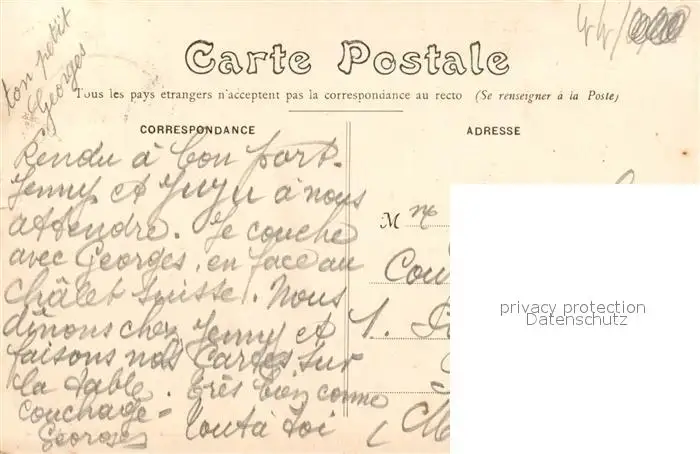 ton petit
Georges
44/
Carte Postale
Tous les pays étrangers n'acceptent pas la correspondance au recto (Se renseigner à la Poste)
CORRESPONDANCE
Rendu à bon port.
Jenny et Juju à nous
attendre. Je couche
avec Georges, en face au
Châlet Suisse. Nous
dînons chez Jenny et
faisons nos Cartes sur
la table. très bien comme
couchage =
Georges tout à toi
ADRESSE
M me
Cou
1.
privacy protection
Datenschutz